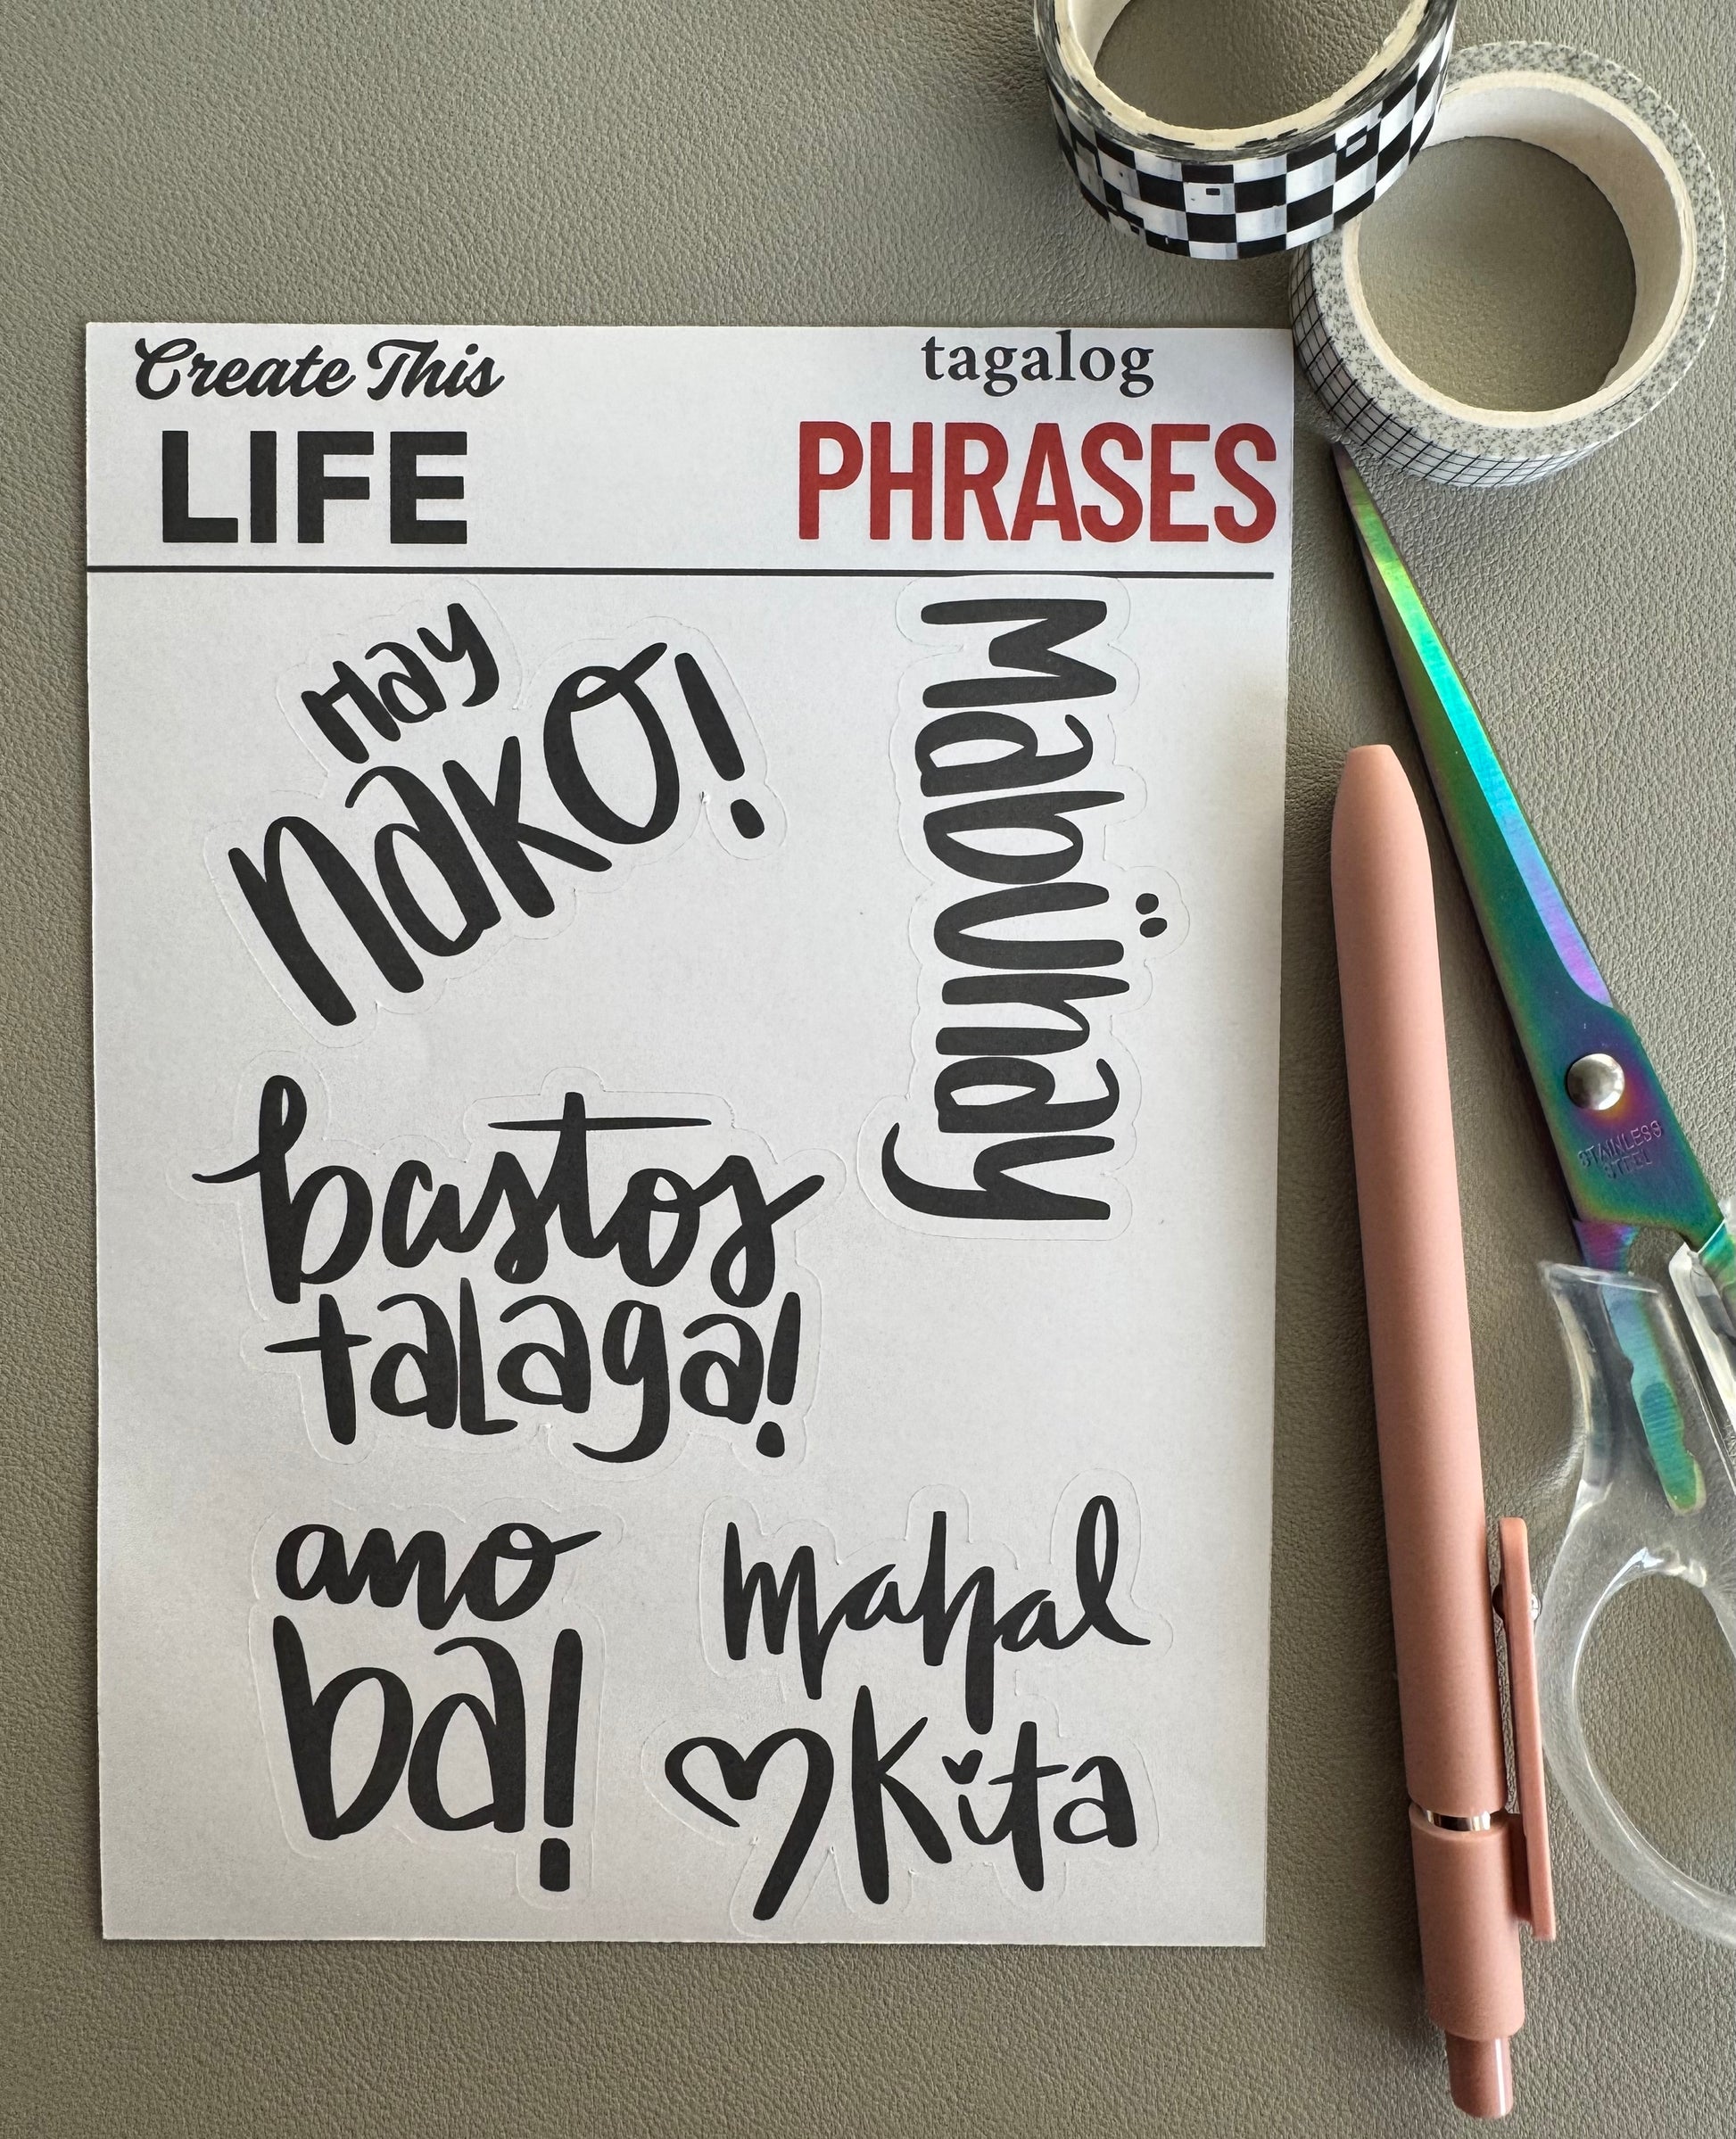 Create This
LIFE
tagalog
PHRASES
Hay
nako!
Mabühay
bastos
talaga!
ano
ba!
mahal
Kita
STAINLESS
STEEL